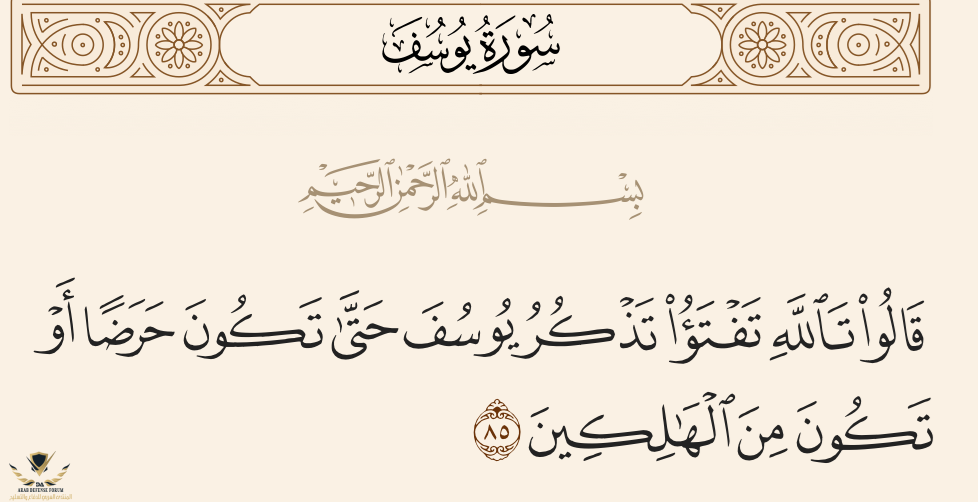 سُورَةُ يُوسُفَ
بِسْمِ ٱللَّهِ ٱلرَّحْمَٰنِ ٱلرَّحِيمِ
قَالُوا۟ تَٱللَّهِ تَفْتَؤُا۟ تَذْكُرُ يُوسُفَ حَتَّىٰ تَكُونَ حَرَضًا أَوْ
تَكُونَ مِنَ ٱلْهَٰلِكِينَ ٨٥
ARAB DEFENSE FORUM
المنتدى العربي للدفاع والتسليح